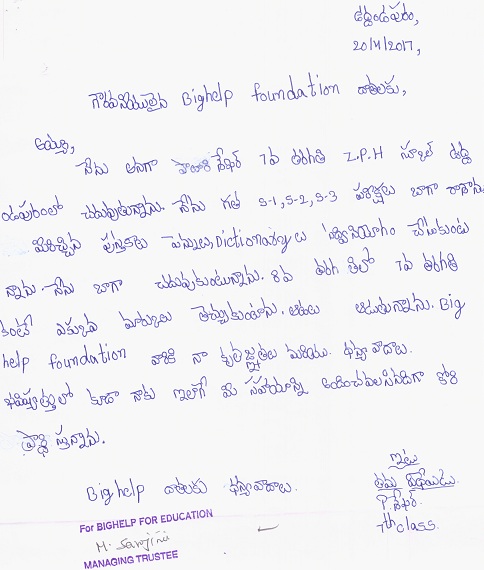 ఉద్దండపురం,
20/4/2017,
గౌరవనీయులైన Bighelp foundation దాతలకు,
అయ్యా,
నేను అనగా శేఖర్ 7వ తరగతి Z.P.H స్కూల్ ఉద్ద
ండపురంలో చదువుతున్నాను. నేను గత S-1, S-2, S-3 పరీక్షలు బాగా రాశాను
మీరిచ్చిన పుస్తకాలు పెన్నులు, Dictionary లు వినియోగం చేసుకుంటు
న్నాను. నేను బాగా చదువుకుంటున్నాను. 8వ తరగతిలో 7వ తరగతి
కంటే ఎక్కువ మార్కులు తెచ్చుకుంటాను. ఆటలు ఆడుతున్నాను. Big
help foundation వారికి నా కృతజ్ఞతలు మరియు ధన్యవాదాలు.
భవిష్యత్తులో కూడా నాకు ఇలాగే మీ సహాయాన్ని అందించవలసినదిగా కోరి
ప్రార్థిస్తున్నాను.
ఇట్లు
తమ విధేయుడు.
Bighelp దాతలకు ధన్యవాదాలు.
P. శేఖర్.
7th class.
For BIGHELP FOR EDUCATION
M. Sarojini
MANAGING TRUSTEE